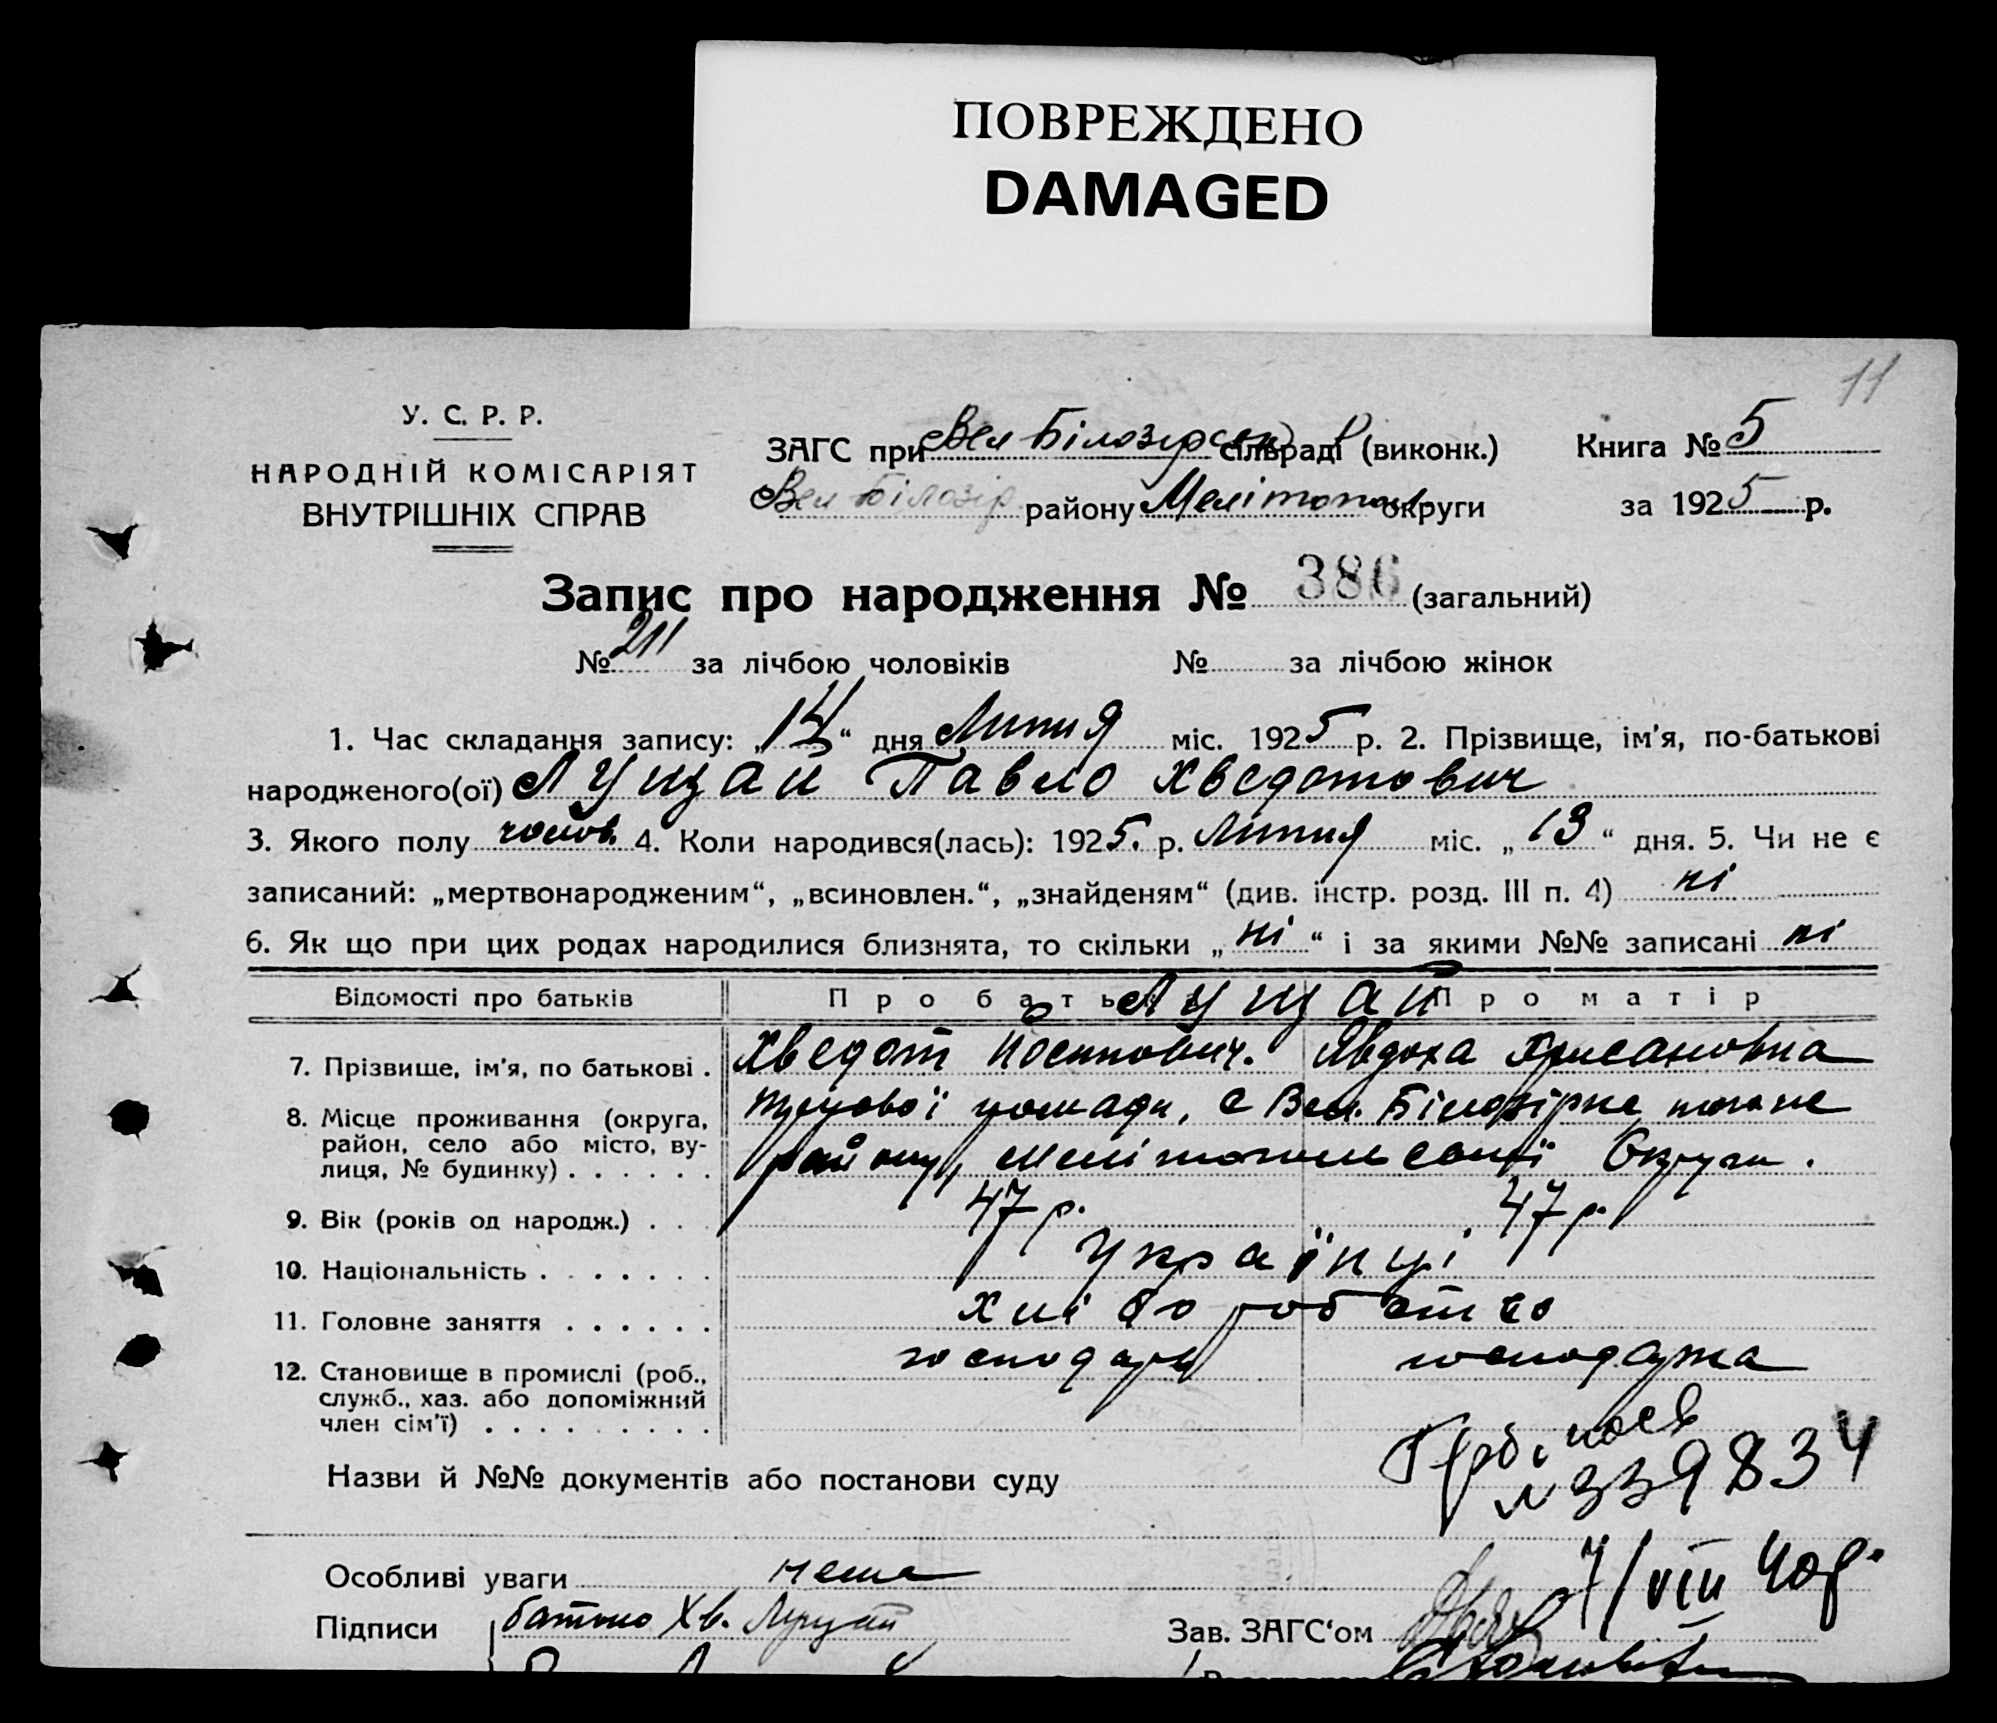 ПОВРЕЖДЕНО
DAMAGED
11
У. С. Р. Р.
НАРОДНІЙ КОМІСАРІЯТ
ВНУТРІШНІХ СПРАВ
ЗАГС при Вел Білозірськ сільраді (виконк.)
Вел Білозір району Мелітопол округи
Книга № 5
за 1925 р.
Запис про народження № 386 (загальний)
№ 211 за лічбою чоловіків № за лічбою жінок
1. Час складання запису: „14“ дня Липня міс. 1925 р. 2. Прізвище, ім'я, по-батькові
народженого(ої) Луцай Павло Хведотович
3. Якого полу чолов. 4. Коли народився(лась): 1925. р. Липня міс. „13“ дня. 5. Чи не є
записаний: „мертвонародженим“, „всиновлен.“, „знайденям“ (див. інстр. розд. III п. 4) ні
6. Як що при цих родах народилися близнята, то скільки „ні“ і за якими №№ записані ні
Відомості про батьків Про батька Луцай Про матір
7. Прізвище, ім'я, по батькові . Хведот Йосипович. Явдоха Хрисановна
8. Місце проживання (округа, громади, с Вел. Білозірка
район, село або місто, ву- району, Мелітопольської Округи.
лиця, № будинку) . . . . . .
9. Вік (років од народж.) . . . 47 р. 47 р.
10. Національність . . . . . . . Українці
11. Головне заняття . . . . . . Хліборобство
12. Становище в промислі (роб., господарь господарка
служб., хаз. або допоміжний
член сім'ї) . . . . . . . . .
Назви й №№ документів або постанови суду
№ 339834
Особливі уваги нема
7/VIII 40р.
Підписи батько Хв. Луцай Зав. ЗАГС'ом